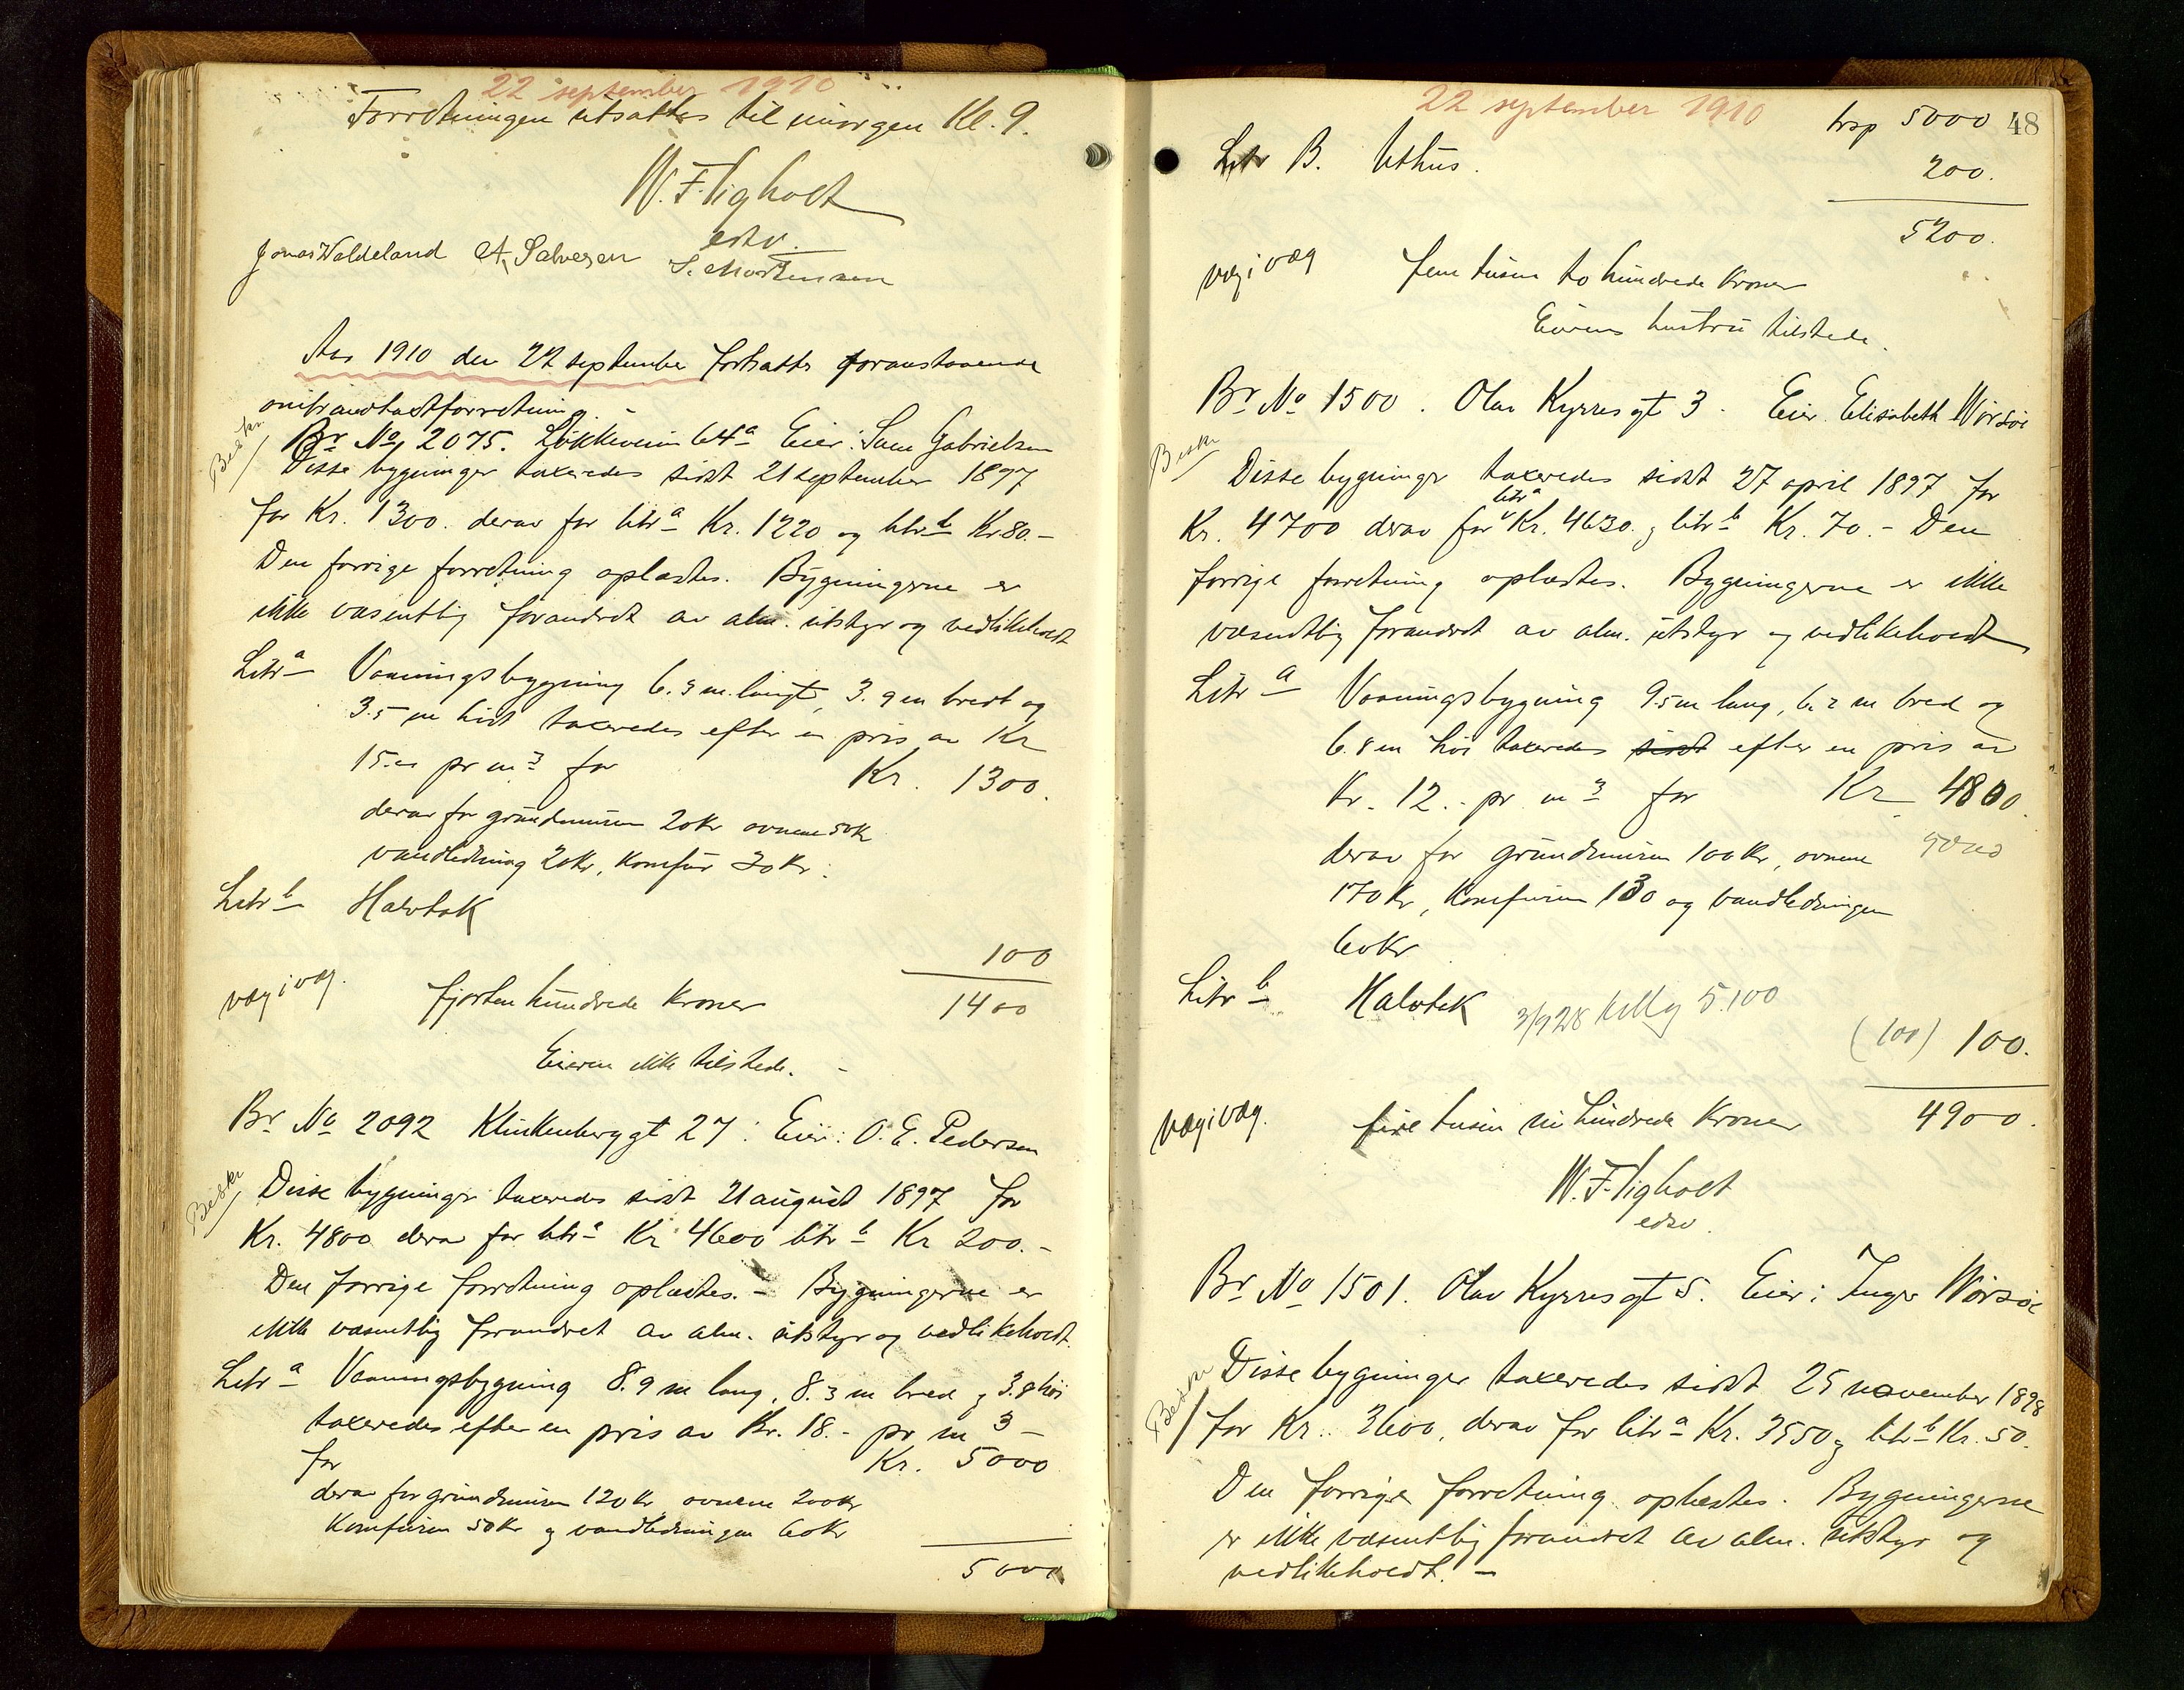 22 september 1910
Forretningen utsattes til imorgen Kl. 9.
W. F. Vigholt
edsv.
Jonas Waldeland A. Salvesen S. Mortensen
Aar 1910 den 22 september fortsattes foranstaaende
ombrandtaxtforretning. -
Beskr.
Br No 2075. Løkkeveien 64a Eier: Sam Gabrielsen
Disse bygninger taxeredes sidst 21 september 1897
for Kr. 1300. derav for litr a Kr. 1220 og litr b Kr 80.-
Den forrige forretning oplæstes. Bygningerne er
ikke væsentlig forandret av alm. utstyr og vedlikeholdt
Litr a Vaaningsbygning 6.3 m. langt, 3.9 m bredt og
3.5 m høit taxeredes efter en pris av Kr
15.00 pr m3 for Kr. 1300.
derav for grundmuren 20 Kr ovnene 50 Kr
vandledning 20 Kr, Komfur 30 Kr.
Litr b Halvtak
100
væg i væg. fjorten hundrede Kroner 1400
Eieren ikke tilstede. -
Br No 2092 Klinkenberggt 27: Eier: O. E. Pedersen
Beskr
Disse bygninger taxeredes sidst 21 august 1897 for
Kr. 4800 derav for litr a Kr 4600 litr b Kr 200.-
Den forrige forretning oplæstes. - Bygningerne er
ikke væsentlig forandret av alm. utstyr og vedlikeholdt.
Litr a Vaaningsbygning 8.9 m lang, 8.3 m bred og 3.8 høi
taxeredes efter en pris av Kr. 18.- pr m3 -
for Kr. 5000
derav for grundmuren 120 Kr ovnene 200 Kr
Komfuren 50 Kr og vandledningen 60 Kr
5000
22 september 1910
trsp 5000 48
Litr B. Uthus. 200.
5200.
væg i væg fem tusen to hundrede Kroner
Eierens hustru tilstede.
Br No 1500. Olav Kyrresgt 3. Eier. Elisabeth Worsøe
Beskr
Disse bygninger taxeredes sidst 27 april 1897 for
Kr. 4700 derav for litr a Kr. 4630. og litr b Kr. 70.- Den
forrige forretning oplæstes. Bygningerne er ikke
væsentlig forandret av alm. utstyr og vedlikeholdt
Litr a Vaaningsbygning 9.5 m lang, 6.2 m bred og
6.8 m høi taxeredes sidst efter en pris av
Kr. 12.- pr m3 for Kr 4800.
derav for grundmuren 100 Kr, ovnene
170 Kr, Komfuren 130 og vandledningen
60 Kr
Litr b Halvtak 5.100
(100) 100.
væg i væg. fire tusen ni hundrede Kroner 4900.
W. F. Vigholt
edsv.
Br No 1501. Olav Kyrresgt 5. Eier: Inger Worsøe
Beskr
Disse bygninger taxeredes sidst 25 november 1898
for Kr. 3600, derav for litr a Kr. 3550 og litr b Kr. 50.
Den forrige forretning oplæstes. Bygningerne
er ikke væsentlig forandret av alm. utstyr og
vedlikeholdt. -